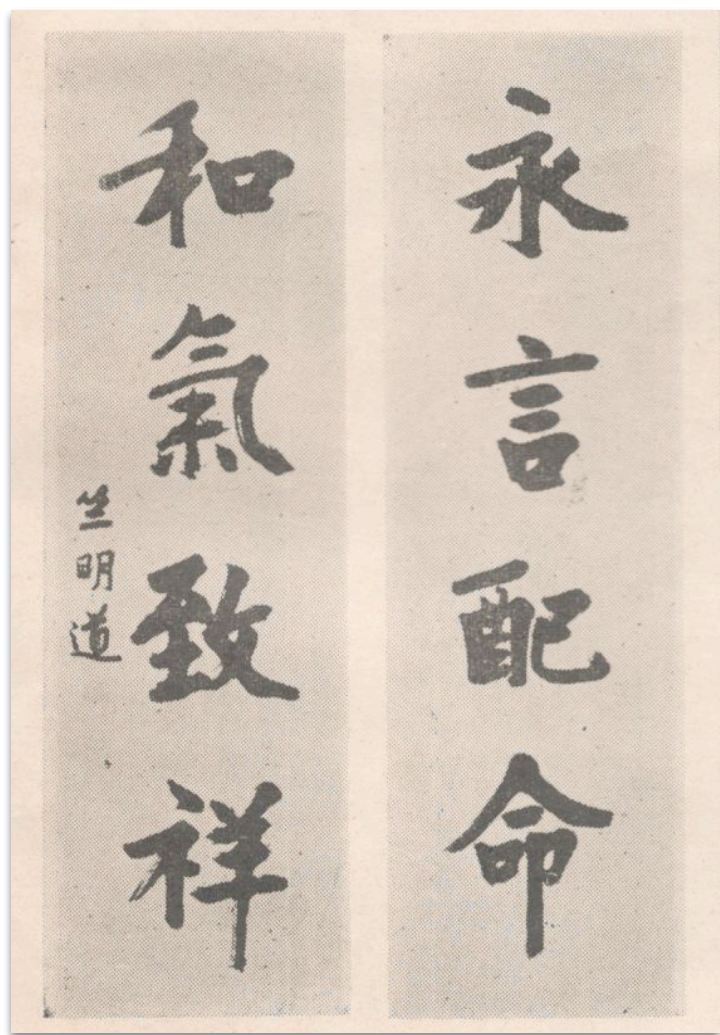 永言配命
和氣致祥
竺明道